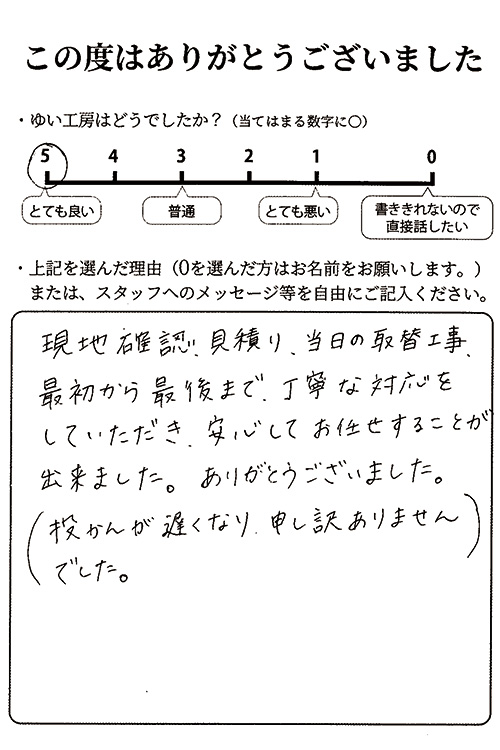 この度はありがとうございました
・ゆい工房はどうでしたか？（当てはまる数字に〇）
5 4 3 2 1 0
とても良い 普通 とても悪い 書ききれないので
直接話したい
・上記を選んだ理由（0を選んだ方はお名前をお願いします。）
または、スタッフへのメッセージ等を自由にご記入ください。
現地確認、見積り、当日の取替工事、
最初から最後まで、丁寧な対応を
していただき、安心してお任せすることが
出来ました。ありがとうございました。
（投かんが遅くなり、申し訳ありません
でした。）